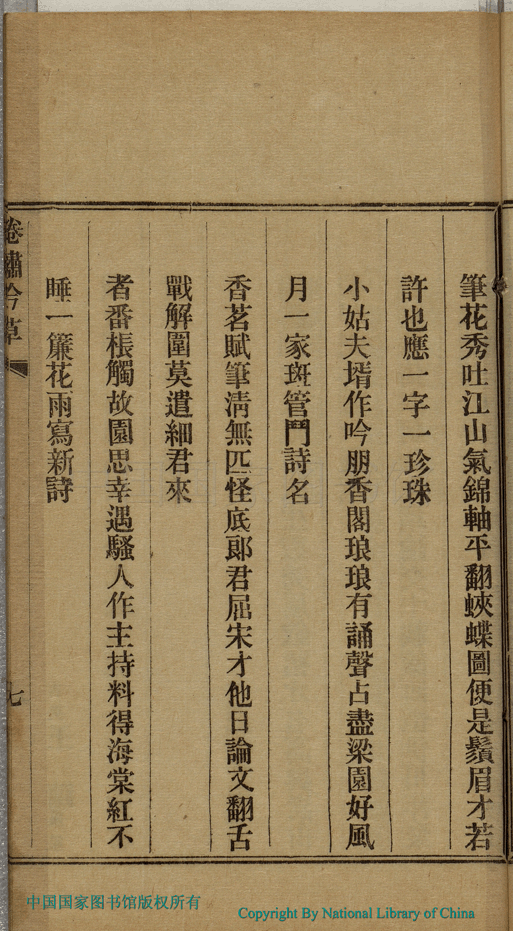 筆花秀吐江山氣錦軸平翻蛺蝶圖便是鬚眉才若
許也應一字一珍珠
小姑夫壻作吟朋香閣琅琅有誦聲占盡梁園好風
月一家斑管鬥詩名
香茗賦筆淸無匹怪底郞君屈宋才他日論文翻舌
戰解圍莫遣細君來
者番棖觸故園思幸遇騷人作主持料得海棠紅不
睡一簾花雨寫新詩
卷繡吟草
七
中国国家图书馆版权所有
Copyright By National Library of China